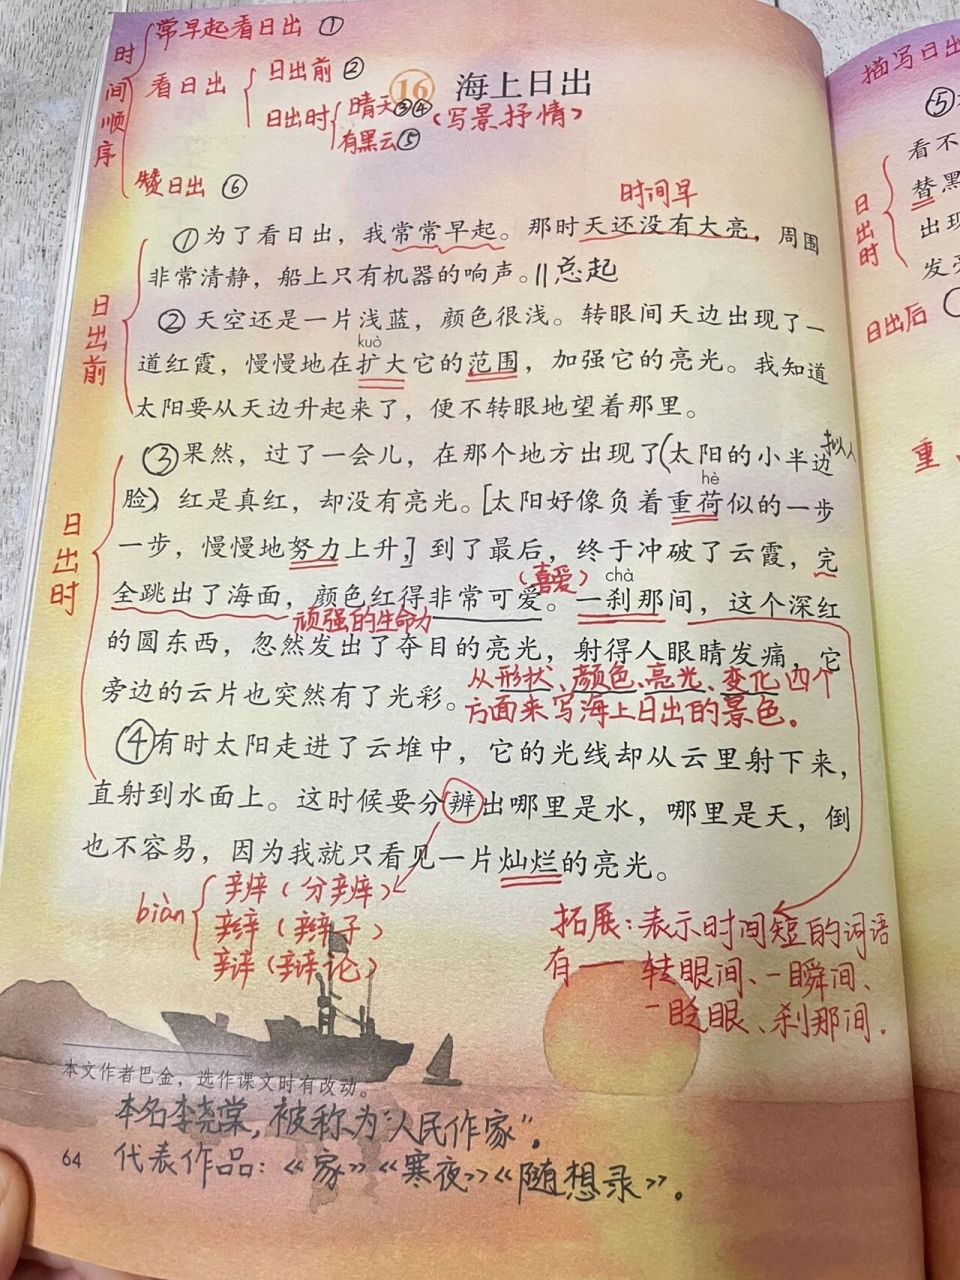 时间顺序
常早起看日出 ①
看日出
日出前 ②
日出时
晴天③④(写景抒情)
有黑云⑤
赞日出 ⑥
16 海上日出
时间早
日出前
①为了看日出，我常常早起。那时天还没有大亮，周围
非常清静，船上只有机器的响声。||总起
②天空还是一片浅蓝，颜色很浅。转眼间天边出现了一
kuò
道红霞，慢慢地在扩大它的范围，加强它的亮光。我知道
太阳要从天边升起来了，便不转眼地望着那里。
日出时
③果然，过了一会儿，在那个地方出现了(太阳的小半边
拟人
hè
脸)红是真红，却没有亮光。[太阳好像负着重荷似的一步
一步，慢慢地努力上升，]到了最后，终于冲破了云霞，完
(喜爱)
chà
全跳出了海面，颜色红得非常可爱。一刹那间，这个深红
顽强的生命力
的圆东西，忽然发出了夺目的亮光，射得人眼睛发痛，它
旁边的云片也突然有了光彩。
从形状、颜色、亮光、变化四个
方面来写海上日出的景色。
④有时太阳走进了云堆中，它的光线却从云里射下来，
直射到水面上。这时候要分辨出哪里是水，哪里是天，倒
也不容易，因为我就只看见一片灿烂的亮光。
biàn
辨(分辨)
辫(辫子)
辩(辩论)
拓展：表示时间短的词语
有——转眼间、一瞬间、
一眨眼、刹那间.
本文作者巴金，选作课文时有改动。
本名李尧棠,被称为"人民作家"。
代表作品：《家》《寒夜》《随想录》。
64
描写日出
⑤
看不
替黑
出现
发亮
日出时
日出后
重